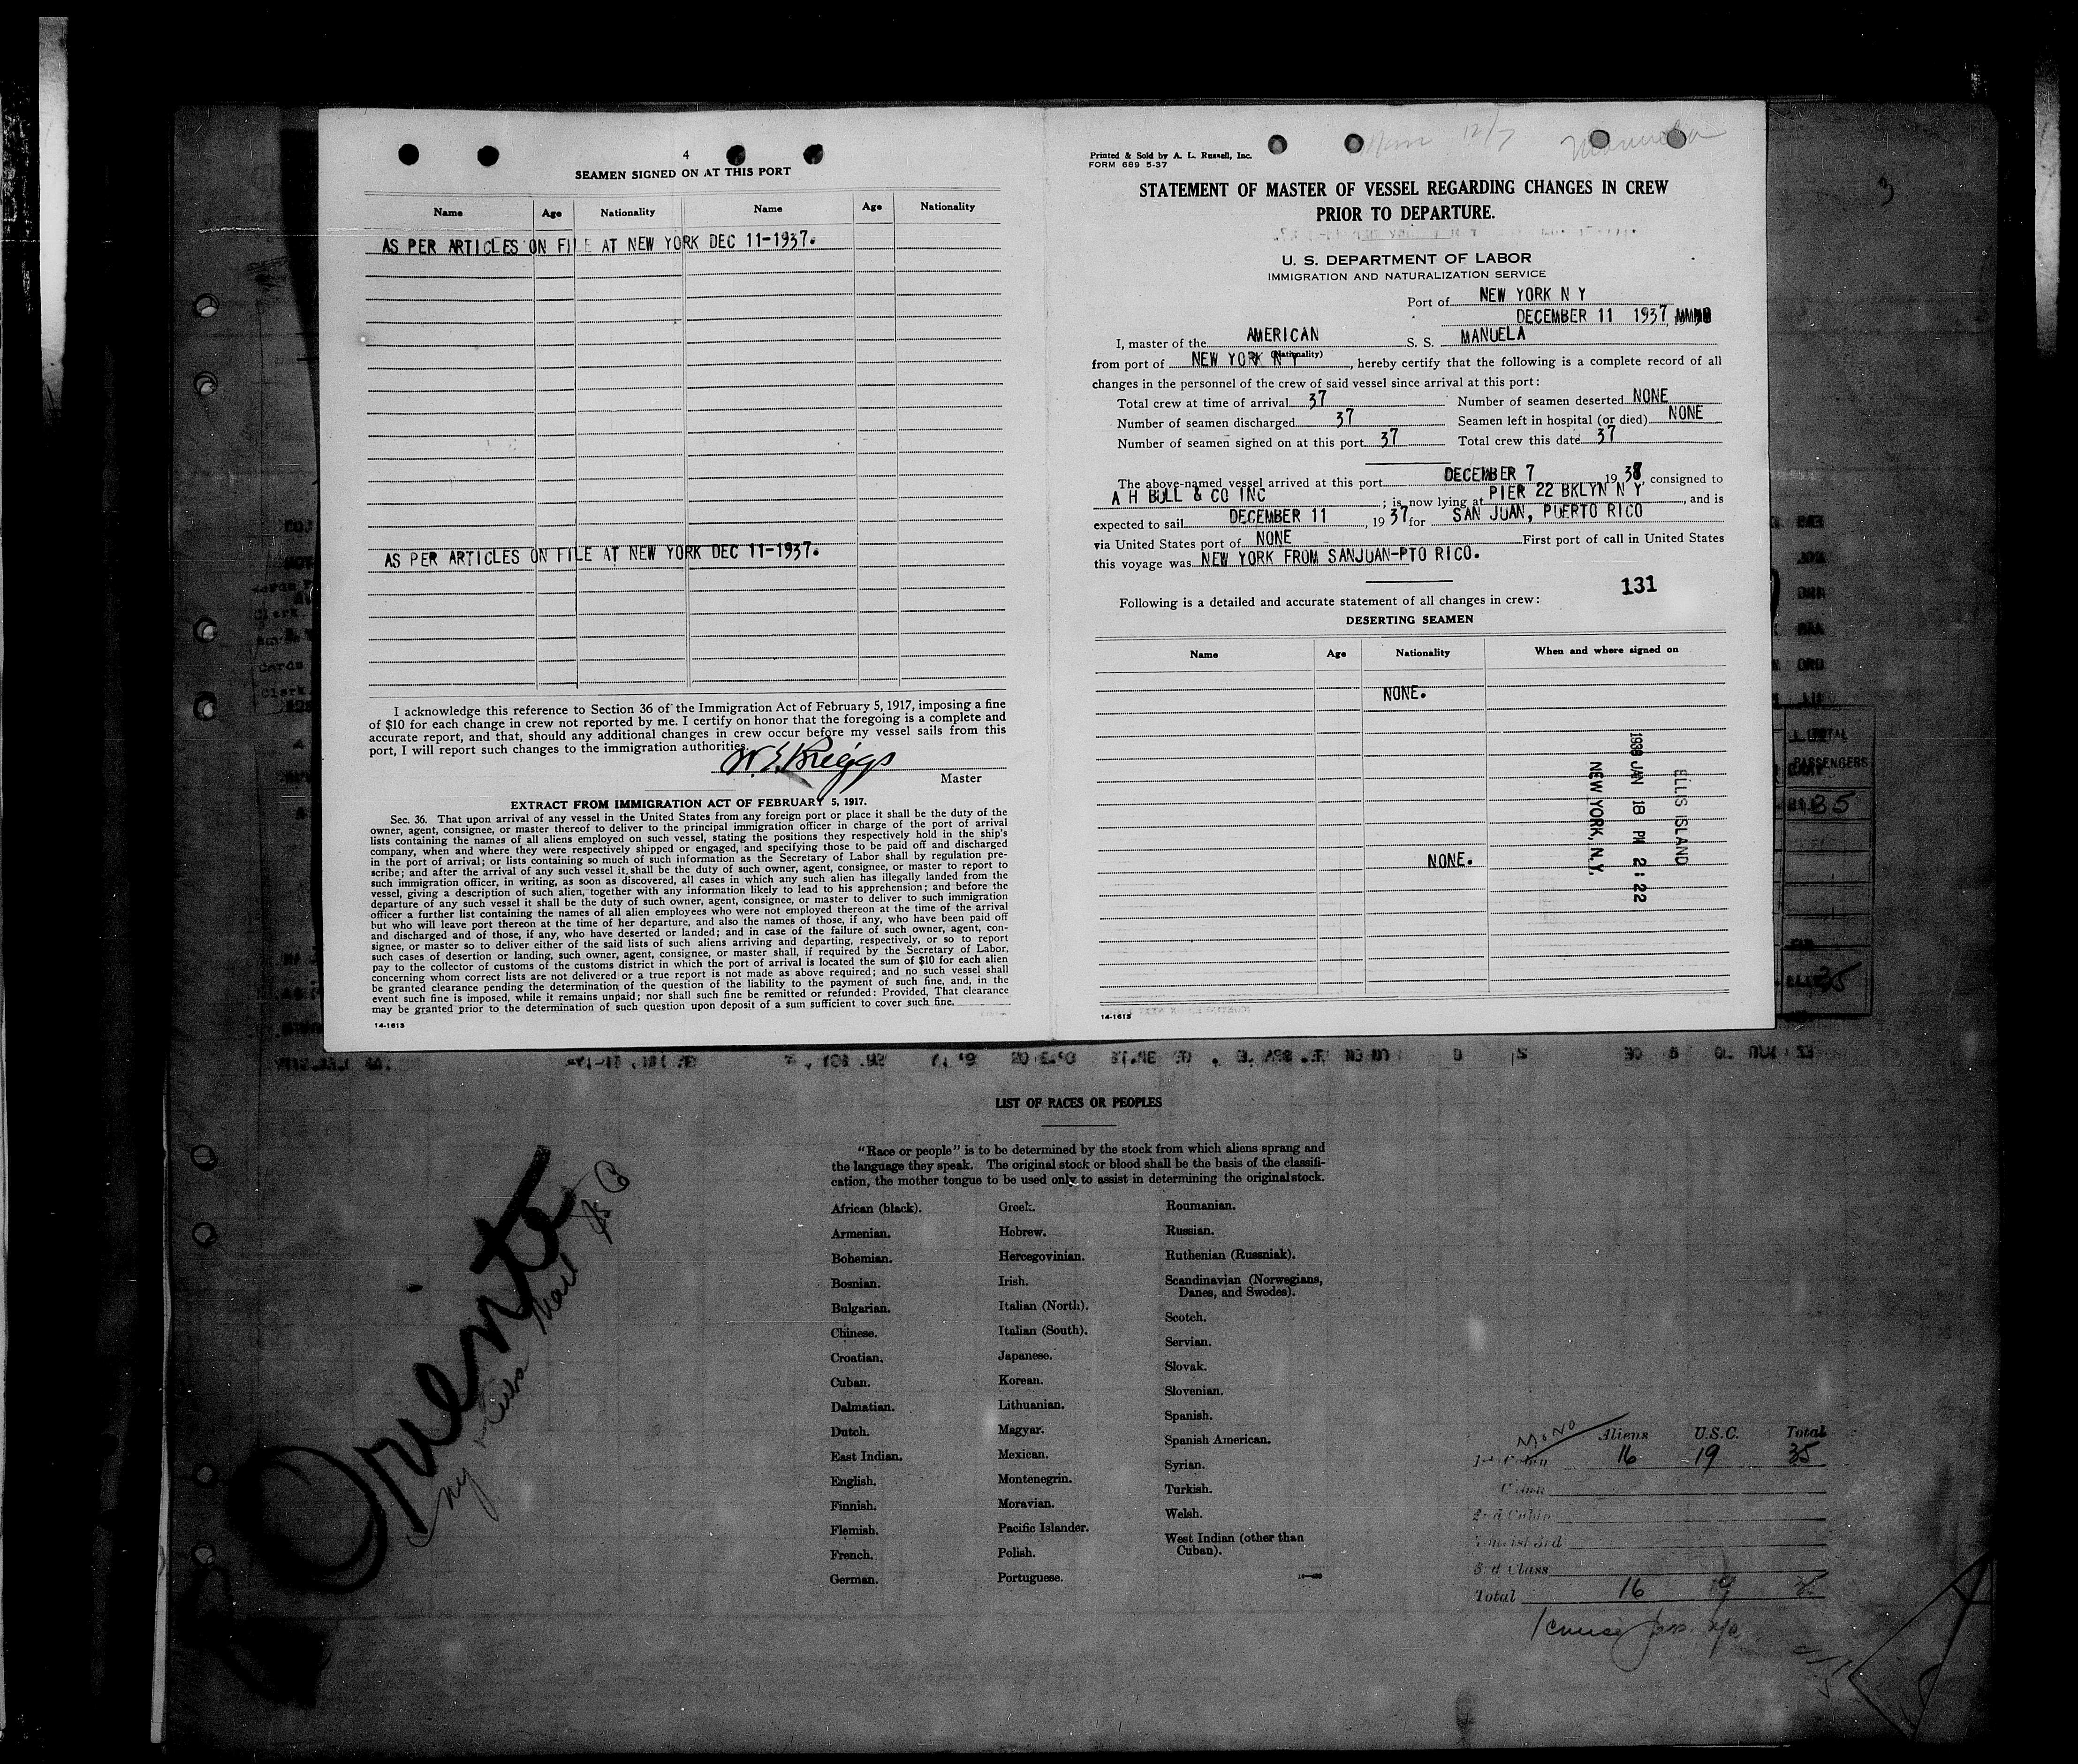 4
SEAMEN SIGNED ON AT THIS PORT
Name Age Nationality Name Age Nationality
AS PER ARTICLES ON FILE AT NEW YORK DEC 11-1937.
AS PER ARTICLES ON FILE AT NEW YORK DEC 11-1937.
I acknowledge this reference to Section 36 of the Immigration Act of February 5, 1917, imposing a fine
of $10 for each change in crew not reported by me. I certify on honor that the foregoing is a complete and
accurate report, and that, should any additional changes in crew occur before my vessel sails from this
port, I will report such changes to the immigration authorities.
W. E. Briggs
Master
EXTRACT FROM IMMIGRATION ACT OF FEBRUARY 5, 1917.
Sec. 36. That upon arrival of any vessel in the United States from any foreign port or place it shall be the duty of the
owner, agent, consignee, or master thereof to deliver to the principal immigration officer in charge of the port of arrival
lists containing the names of all aliens employed on such vessel, stating the positions they respectively hold in the ship's
company, when and where they were respectively shipped or engaged, and specifying those to be paid off and discharged
in the port of arrival; or lists containing so much of such information as the Secretary of Labor shall by regulation pre-
scribe; and after the arrival of any such vessel it shall be the duty of such owner, agent, consignee, or master to report to
such immigration officer, in writing, as soon as discovered, all cases in which any such alien has illegally landed from the
vessel, giving a description of such alien, together with any information likely to lead to his apprehension; and before the
departure of any such vessel it shall be the duty of such owner, agent, consignee, or master to deliver to such immigration
officer a further list containing the names of all alien employees who were not employed thereon at the time of the arrival
but who will leave port thereon at the time of her departure, and also the names of those, if any, who have been paid off
and discharged and of those, if any, who have deserted or landed; and in case of the failure of such owner, agent, con-
signee, or master so to deliver either of the said lists of such aliens arriving and departing, respectively, or so to report
such cases of desertion or landing, such owner, agent, consignee, or master shall, if required by the Secretary of Labor,
pay to the collector of customs of the customs district in which the port of arrival is located the sum of $10 for each alien
concerning whom correct lists are not delivered or a true report is not made as above required; and no such vessel shall
be granted clearance pending the determination of the question of the liability to the payment of such fine, and, in the
event such fine is imposed, while it remains unpaid; nor shall such fine be remitted or refunded: Provided, That clearance
may be granted prior to the determination of such question upon deposit of a sum sufficient to cover such fine.
14-1613
12/7 Manuela
Printed & Sold by A. L. Russell, Inc.
FORM 689 5-37
STATEMENT OF MASTER OF VESSEL REGARDING CHANGES IN CREW
PRIOR TO DEPARTURE.
U. S. DEPARTMENT OF LABOR
IMMIGRATION AND NATURALIZATION SERVICE
Port of NEW YORK N Y
DECEMBER 11 1937,
I, master of the AMERICAN S. S. MANUELA
(Nationality)
from port of NEW YORK N Y, hereby certify that the following is a complete record of all
changes in the personnel of the crew of said vessel since arrival at this port:
Total crew at time of arrival 37 Number of seamen deserted NONE
Number of seamen discharged 37 Seamen left in hospital (or died) NONE
Number of seamen signed on at this port 37 Total crew this date 37
The above-named vessel arrived at this port DECEMBER 7 1937, consigned to
A H BULL & CO INC; is now lying at PIER 22 BKLYN N Y, and is
expected to sail DECEMBER 11, 1937 for SAN JUAN, PUERTO RICO
via United States port of NONE First port of call in United States
this voyage was NEW YORK FROM SANJUAN-PTO RICO.
131
Following is a detailed and accurate statement of all changes in crew:
DESERTING SEAMEN
Name Age Nationality When and where signed on
NONE.
NONE.
ELLIS ISLAND
1938 JAN 18 PM 2:22
NEW YORK, N.Y.
14-1613
3
TOTAL
PASSENGERS
35
35
LIST OF RACES OR PEOPLES
"Race or people" is to be determined by the stock from which aliens sprang and
the language they speak. The original stock or blood shall be the basis of the classifi-
cation, the mother tongue to be used only to assist in determining the original stock.
African (black). Greek. Roumanian.
Armenian. Hebrew. Russian.
Bohemian. Hercegovinian. Ruthenian (Russniak).
Bosnian. Irish. Scandinavian (Norwegians,
Danes, and Swedes).
Bulgarian. Italian (North). Scotch.
Chinese. Italian (South). Servian.
Croatian. Japanese. Slovak.
Cuban. Korean. Slovenian.
Dalmatian. Lithuanian. Spanish.
Dutch. Magyar. Spanish American.
East Indian. Mexican. Syrian.
English. Montenegrin. Turkish.
Finnish. Moravian. Welsh.
Flemish. Pacific Islander. West Indian (other than
Cuban).
French. Polish.
German. Portuguese.
Oriente
NY Cuba Mail SS Co
MONO Aliens U.S.C. Total
1st Cabin 16 19 35
Cabin
2nd Cabin
Tourist 3rd
3rd Class
Total 16 19